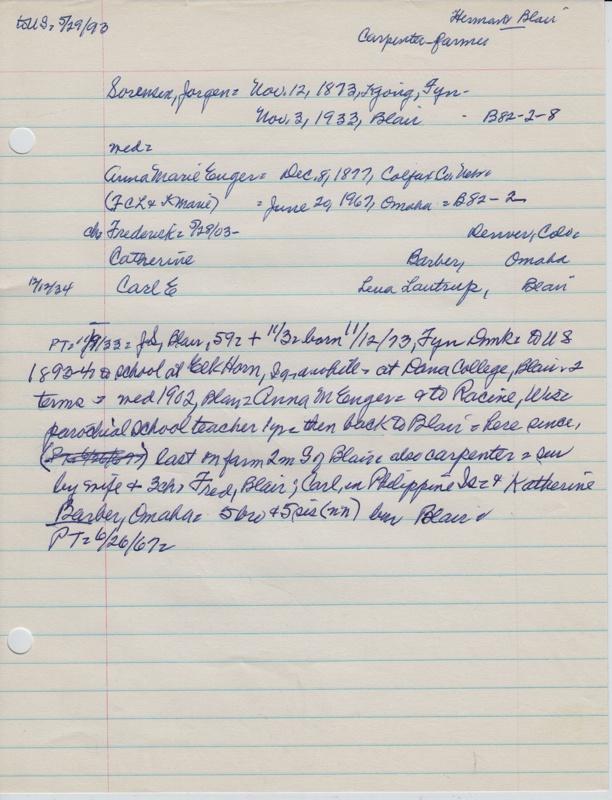 to U.S. 5/29/93
Herman & Blair
Carpenter-farmer
Sorensen, Jorgen = Nov. 12, 1873, Kjong, Fyn -
Nov. 3, 1933, Blair - B82-2-8
med =
Anna Marie Enger = Dec. 8, 1877, Colfax Co. Nebr.
(J C L & K Marie) = June 20, 1967, Omaha = B82-2
ch = Frederick = 5/28/03 - Denver, Colo.
Catherine Barber, Omaha
12/13/34 Carl E Lena Lautrup, Blair
PT = 11/9/33 = JS, Blair, 59 = + 11/3 = born 11/12/73, Fyn Dmk = to US
1893 = to school at Elk Horn, Ia, awhile = at Dana College, Blair = 2
terms = med 1902, Blair = Anna M Enger = & to Racine, Wisc
parochial school teacher 1 yr = then back to Blair = here since,
last on farm 2 m S of Blair = also carpenter = sur
by wife + 3 ch = Fred, Blair; Carl, in Philippine Is = & Katherine
Barber, Omaha = 5 bro + 5 sis (nn) bur Blair
PT = 6/26/67 =